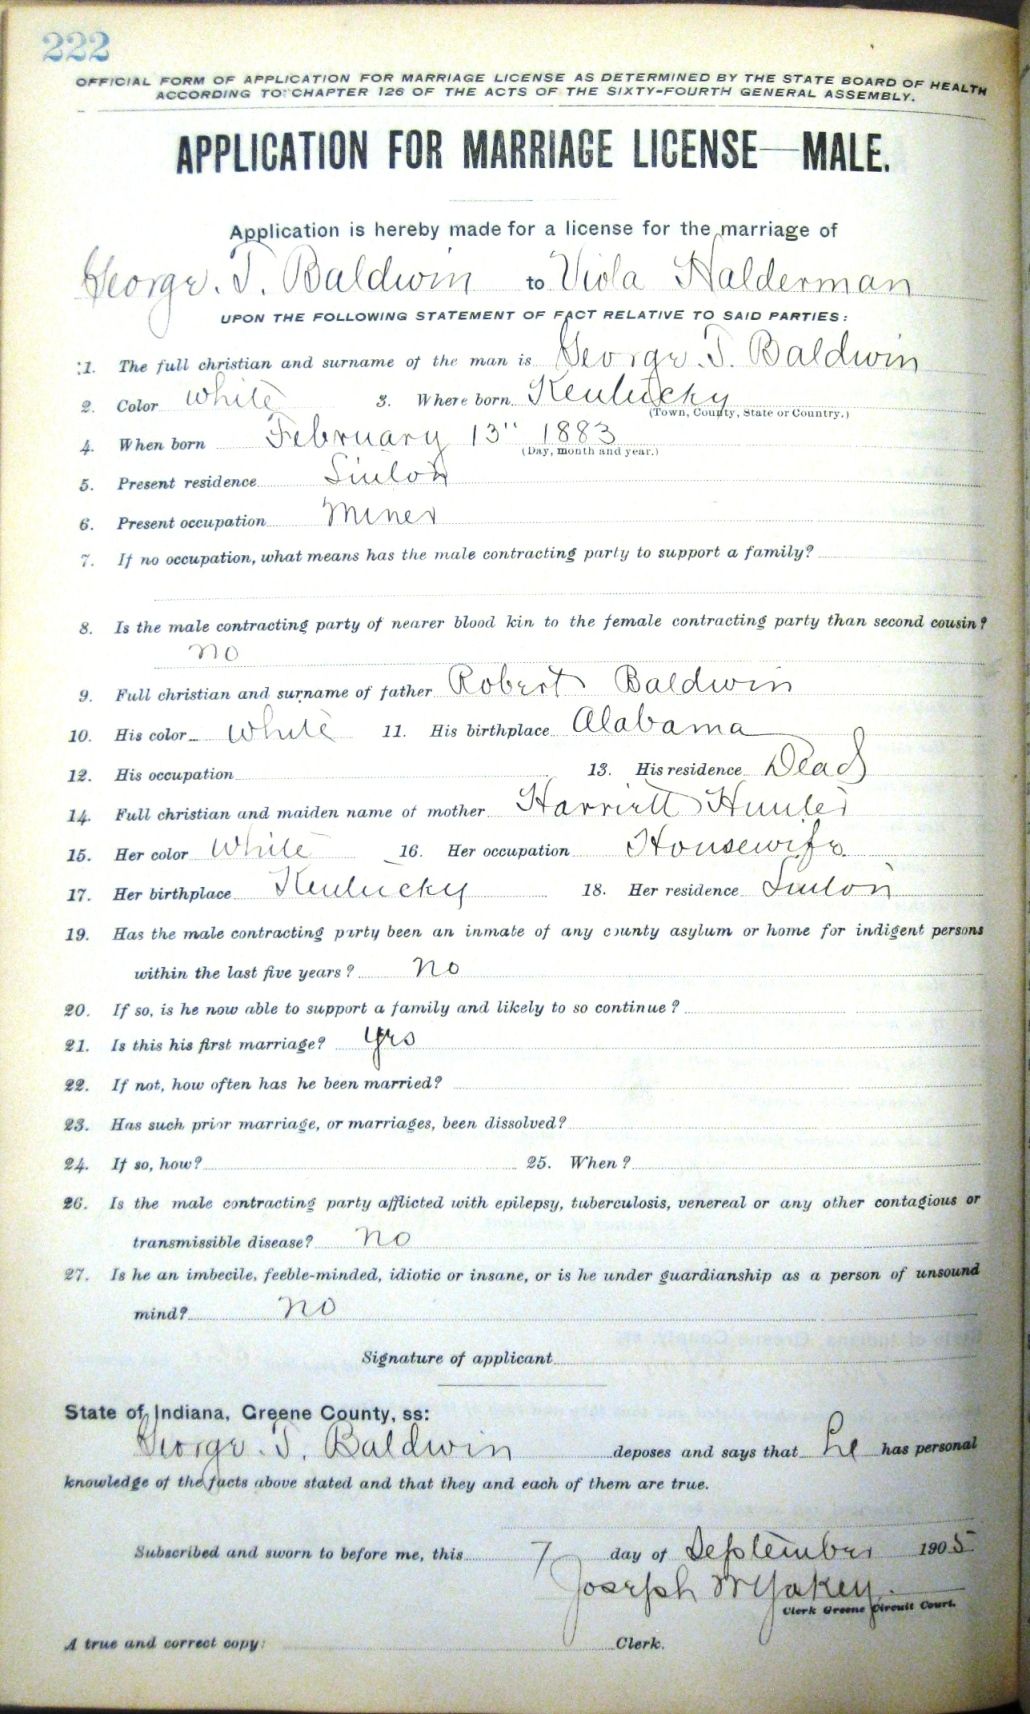 222
OFFICIAL FORM OF APPLICATION FOR MARRIAGE LICENSE AS DETERMINED BY THE STATE BOARD OF HEALTH
ACCORDING TO CHAPTER 126 OF THE ACTS OF THE SIXTY-FOURTH GENERAL ASSEMBLY.
APPLICATION FOR MARRIAGE LICENSE—MALE.
Application is hereby made for a license for the marriage of
George. T. Baldwin to Viola Halderman
UPON THE FOLLOWING STATEMENT OF FACT RELATIVE TO SAID PARTIES:
1. The full christian and surname of the man is George. T. Baldwin
2. Color White 3. Where born Kentucky
(Town, County, State or Country.)
4. When born February 13" 1883
(Day, month and year.)
5. Present residence Linton
6. Present occupation Miner
7. If no occupation, what means has the male contracting party to support a family?
8. Is the male contracting party of nearer blood kin to the female contracting party than second cousin?
no
9. Full christian and surname of father Robert Baldwin
10. His color White 11. His birthplace Alabama
12. His occupation 13. His residence Dead
14. Full christian and maiden name of mother Harriett Hunter
15. Her color White 16. Her occupation Housewife
17. Her birthplace Kentucky 18. Her residence Linton
19. Has the male contracting party been an inmate of any county asylum or home for indigent persons
within the last five years? no
20. If so, is he now able to support a family and likely to so continue?
21. Is this his first marriage? yes
22. If not, how often has he been married?
23. Has such prior marriage, or marriages, been dissolved?
24. If so, how? 25. When?
26. Is the male contracting party afflicted with epilepsy, tuberculosis, venereal or any other contagious or
transmissible disease? no
27. Is he an imbecile, feeble-minded, idiotic or insane, or is he under guardianship as a person of unsound
mind? no
Signature of applicant
State of Indiana, Greene County, ss:
George. T. Baldwin deposes and says that he has personal
knowledge of the facts above stated and that they and each of them are true.
Subscribed and sworn to before me, this 7 day of September 1905
Joseph W Yakey.
Clerk Greene Circuit Court.
A true and correct copy: Clerk.